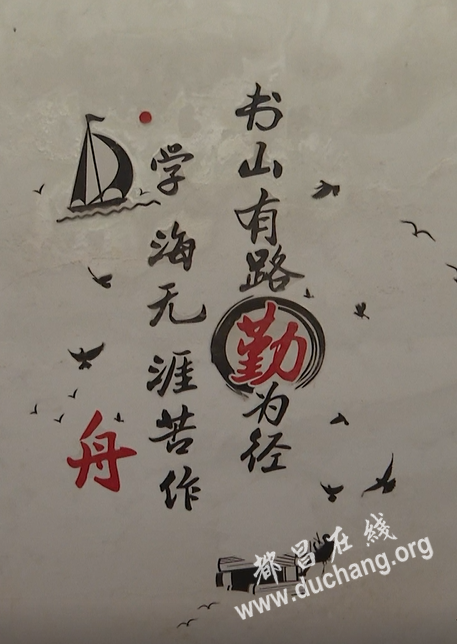 书山有路勤为径
学海无涯苦作
舟
都昌在线
www.duchang.org